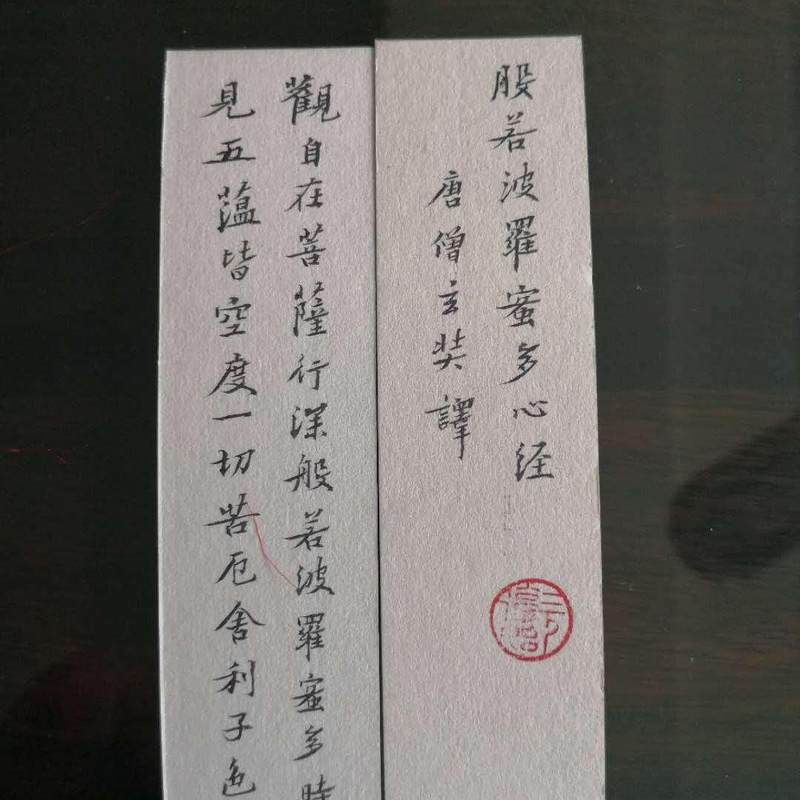 般若波羅蜜多心经
唐僧玄奘譯
觀自在菩薩行深般若波羅蜜多時
見五蕴皆空度一切苦厄舍利子色